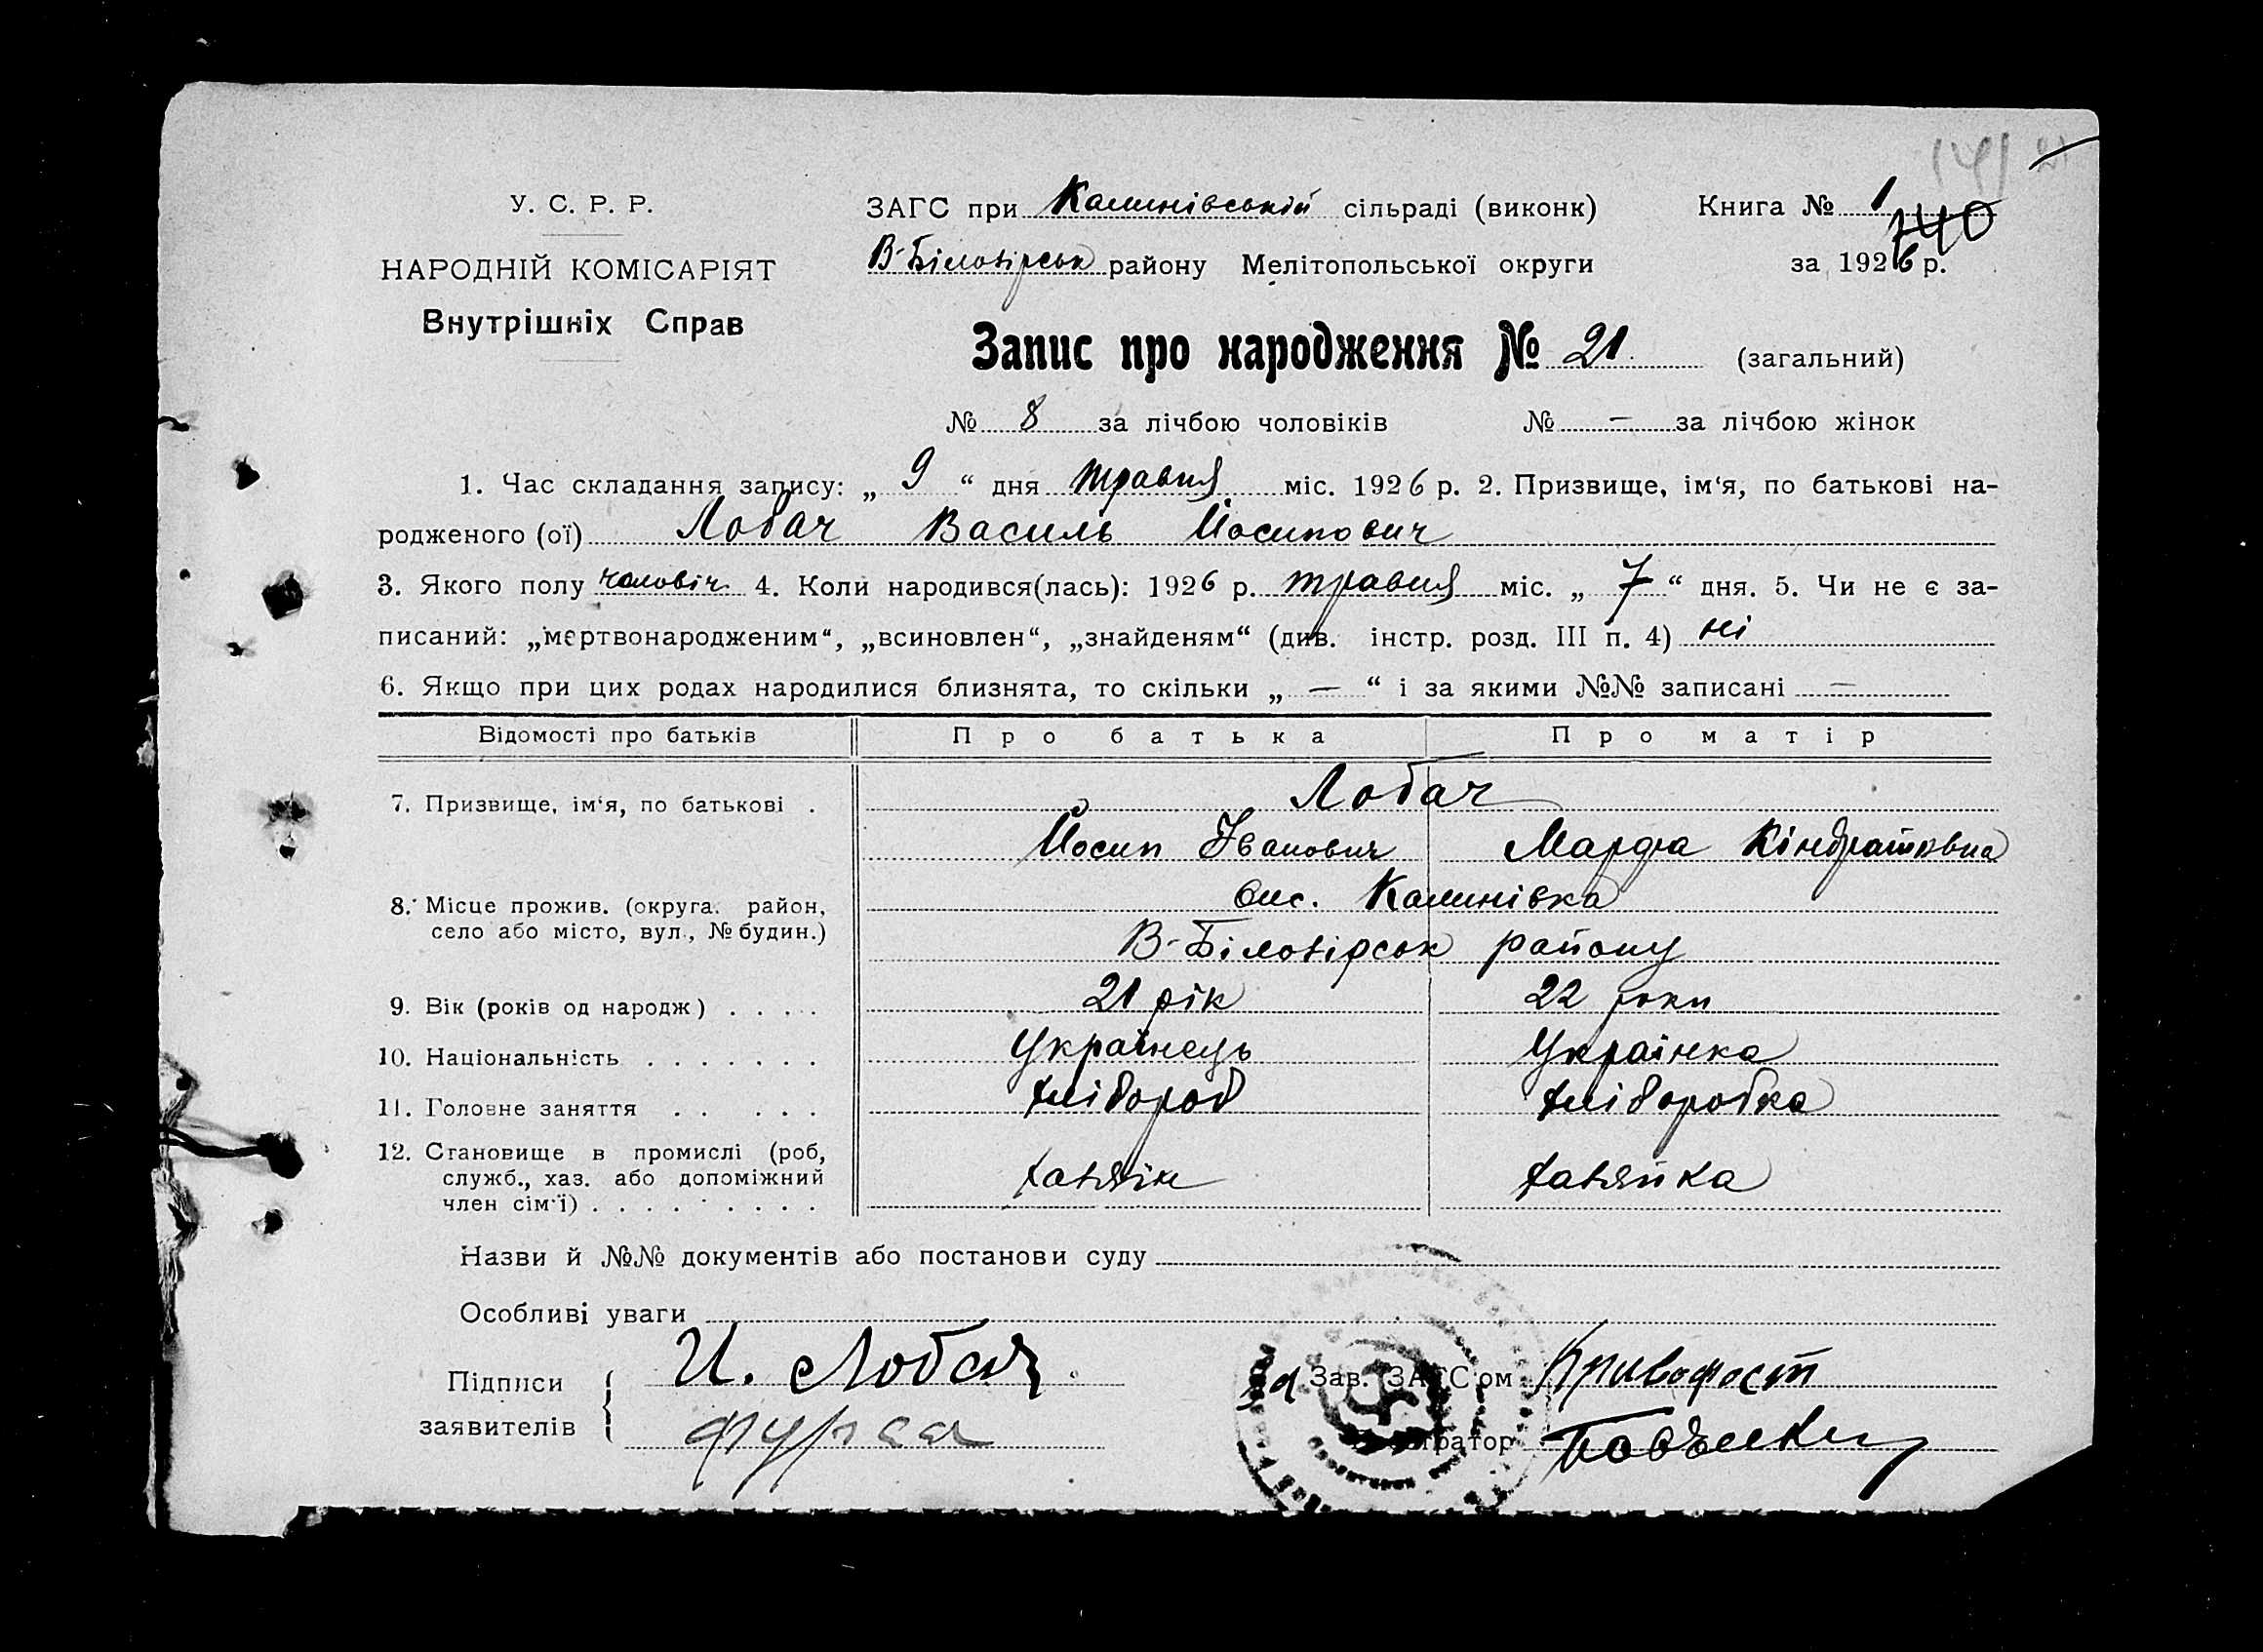 У. С. Р. Р.
НАРОДНІЙ КОМІСАРІЯТ
Внутрішніх Справ
ЗАГС при Калинівській сільраді (виконк) Книга № 1
140
В-Білозірськ району Мелітопольської округи за 1926 р.
Запис про народження № 21 (загальний)
№ 8 за лічбою чоловіків № — за лічбою жінок
1. Час складання запису: „ 9 “ дня травня міс. 1926 р. 2. Призвище, ім‘я, по батькові на-
родженого (ої) Лобач Василь Йосипович
3. Якого полу чоловіч. 4. Коли народився(лась): 1926 р. травня міс. „ 7 “ дня. 5. Чи не є за-
писаний: „мертвонародженим“, „всиновлен“, „знайденям“ (див. інстр. розд. III п. 4) ні
6. Якщо при цих родах народилися близнята, то скільки „ — “ і за якими №№ записані —
Відомості про батьків Про батька Про матір
7. Призвище, ім‘я, по батькові . Лобач
Йосип Іванович Марфа Кіндратовна
8. Місце прожив. (округа. район, вис. Калинівка
село або місто, вул., № будин.) В-Білозірськ району
9. Вік (років од народж) . . . . 21 рік 22 роки
10. Національність . . . . . . . Українець Українка
11. Головне заняття . . . . . хлібороб хліборобка
12. Становище в промислі (роб,
служб., хаз. або допоміжний хазяїн хазяйка
член сім‘ї) . . . . . . . .
Назви й №№ документів або постанови суду
Особливі уваги
Підписи И. Лобач Зав. ЗАГС‘ом Кривохост
заявителів Фурса